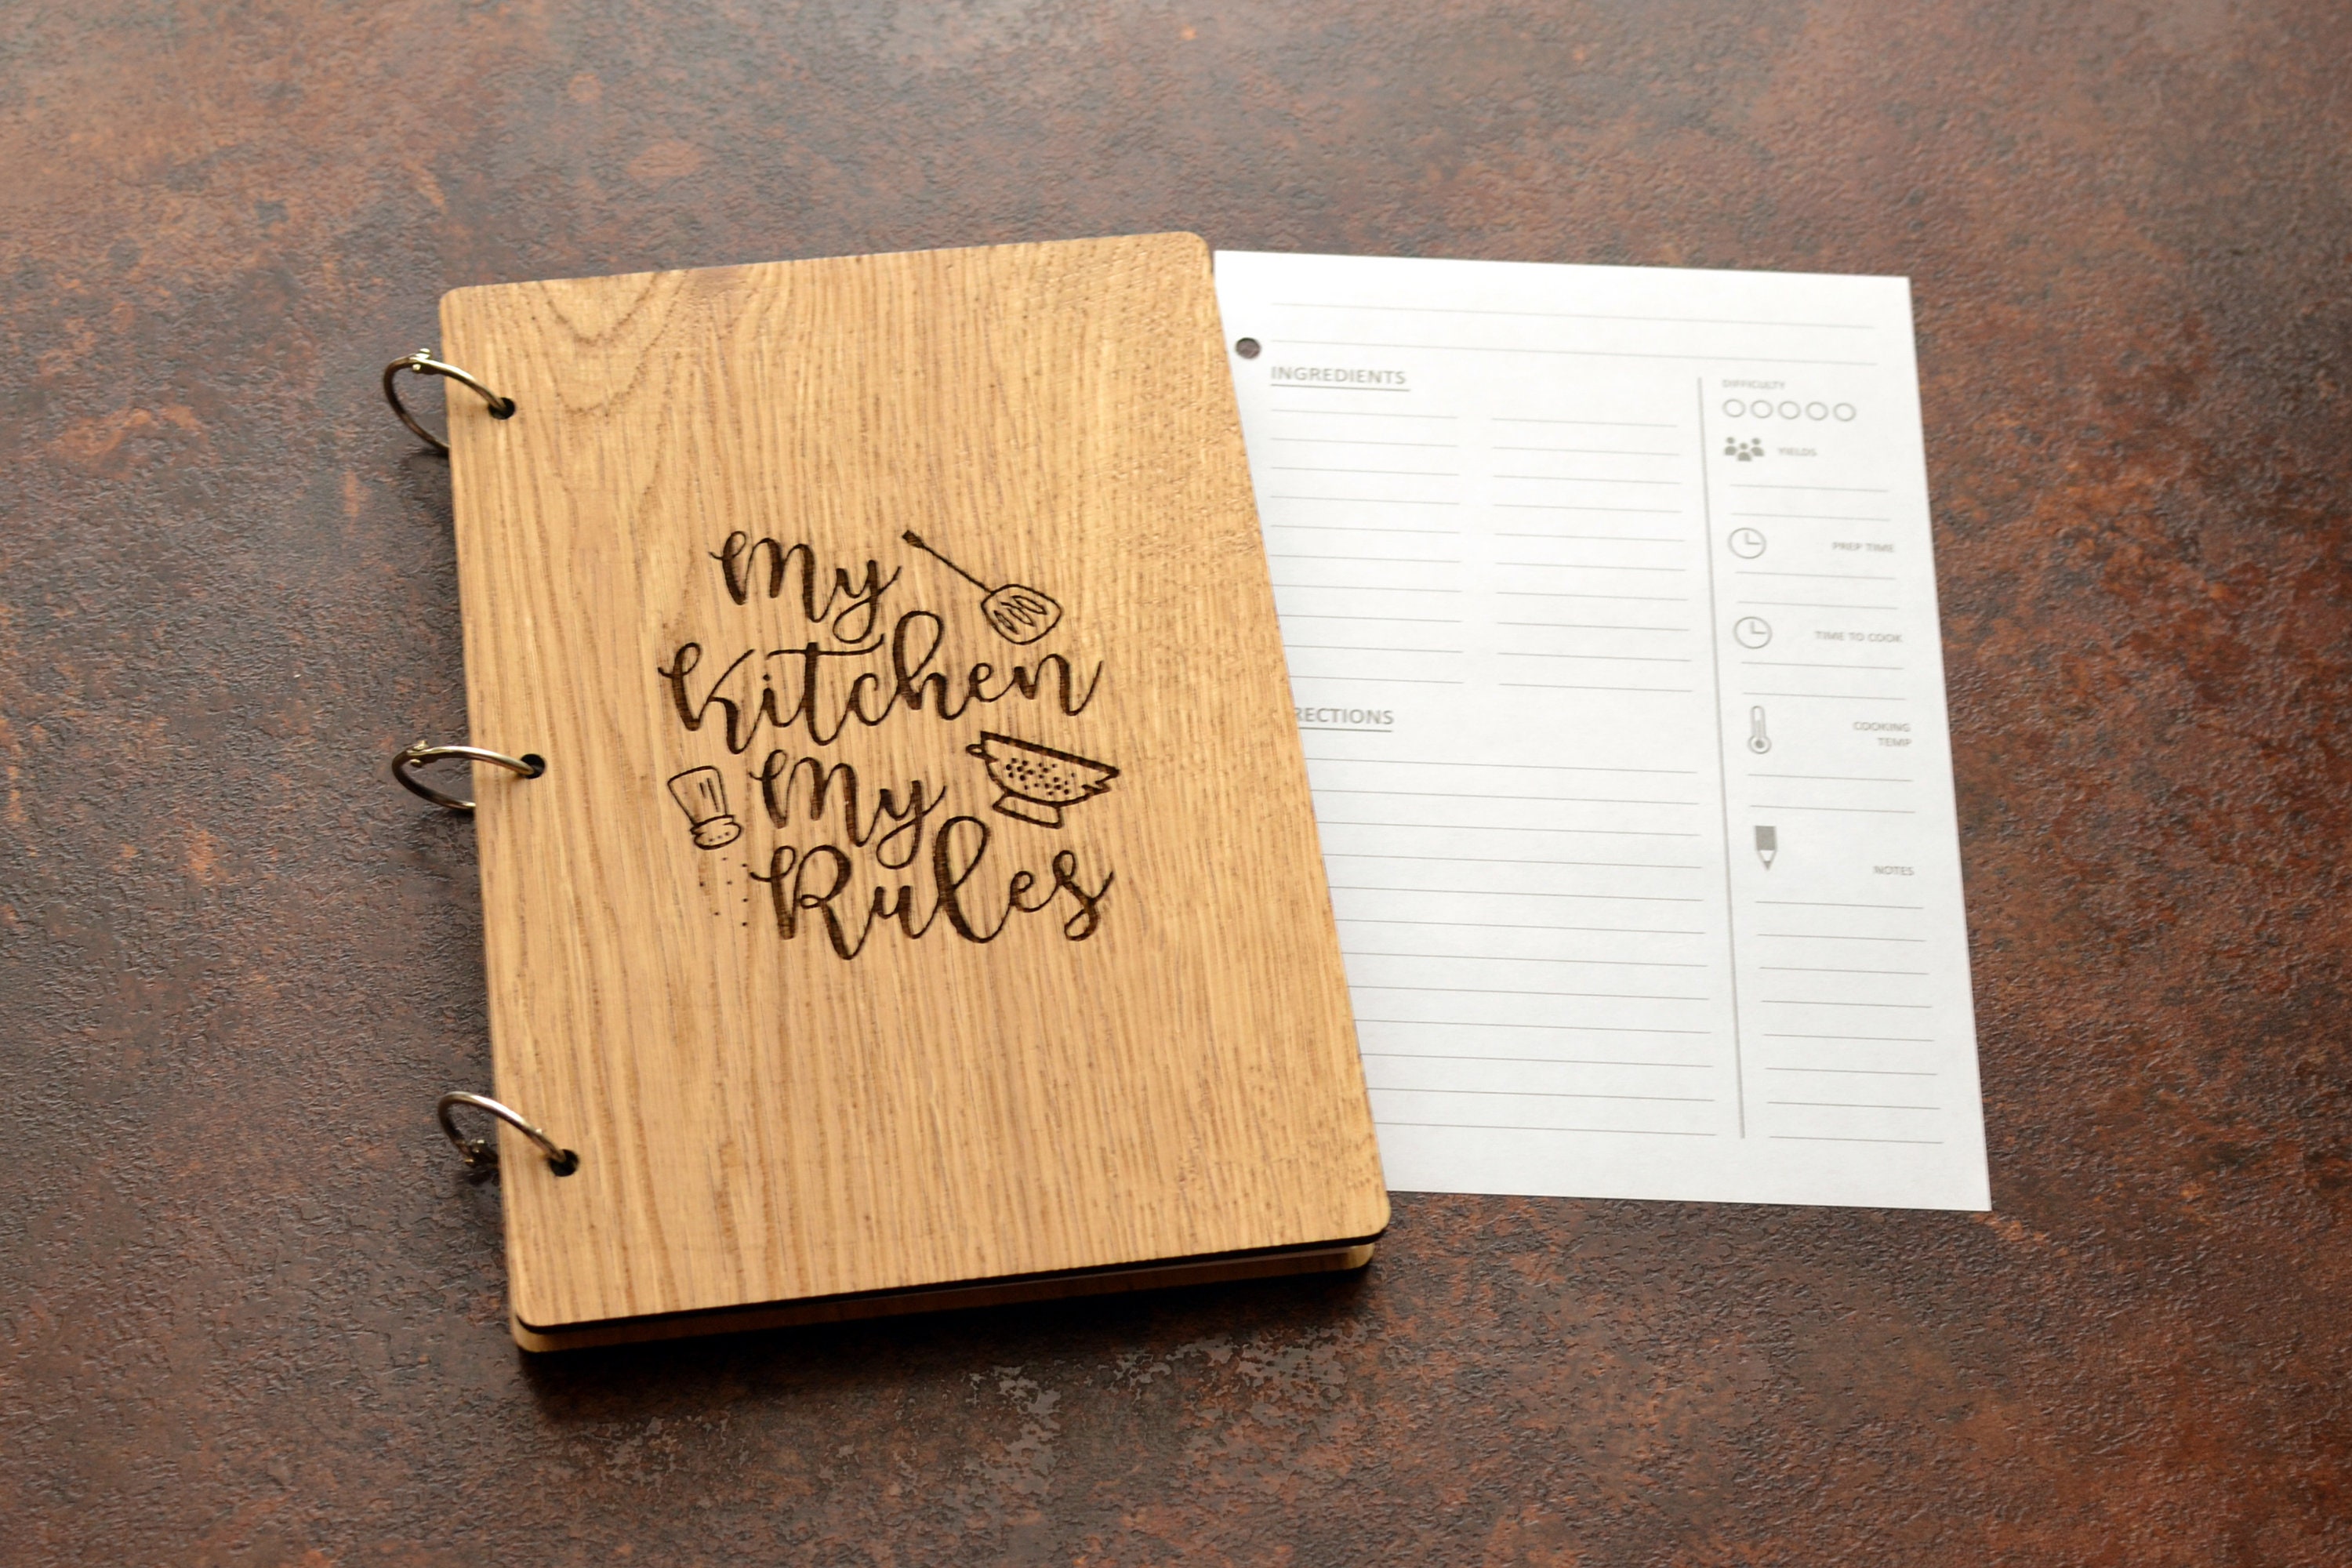 My
Kitchen
My
Rules
INGREDIENTS
RECTIONS
DIFFICULTY
YIELDS
PREP TIME
TIME TO COOK
COOKING
TEMP
NOTES